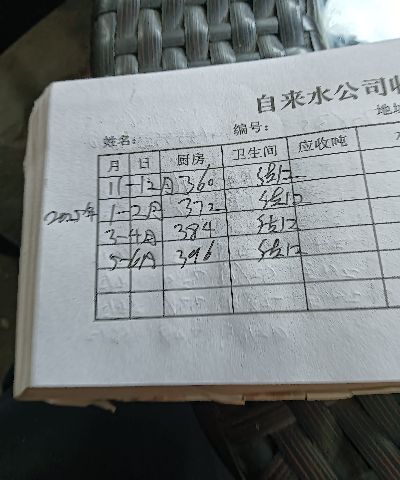 自来水公司收
姓名: 编号: 地址
月 日 厨房 卫生间 应收吨
11-12月 360
2025年 1-2月 372
3-4月 384
5-6月 396